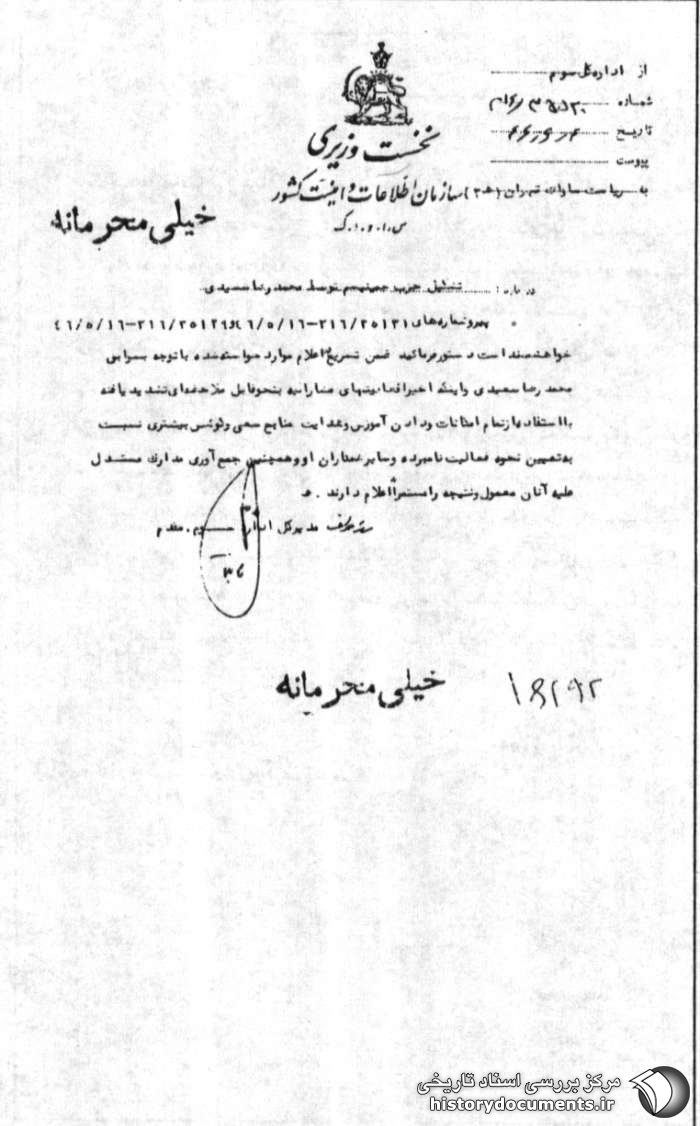 از اداره کل سوم
شماره
تاریخ
پیوست
نخست وزیری
به ریاست ساواک تهران (۲۰ ه‍) سازمان اطلاعات و امنیت کشور
س.ا.و.ا.ک
خیلی محرمانه
درباره: تشکیل حزب توسط محمد رضا سعیدی
پیرو شماره‌های ۳۱۶/۳۵۱۳۱-۴۶/۵/۱۶ و ۳۱۶/۳۵۱۲۹-۴۶/۵/۱۶
خواهشمند است دستور فرمائید ضمن تسریع اعلام موارد خواسته شده با توجه بسوابق
محمد رضا سعیدی و اینکه اخیرا فعالیتهای مشارالیه بنحو قابل ملاحظه‌ای تشدید یافته
با استفاده از تمام امکانات و دادن آموزش و هدایت منابع سعی و کوشش بیشتری نسبت
به تعیین نحوه فعالیت نامبرده و سایر همکاران او و همچنین جمع آوری مدارک مستدل
علیه آنان معمول و نتیجه را مستمراً اعلام دارند. ه‍
مدیرکل اداره سوم. مقدم
خیلی محرمانه
مرکز بررسی اسناد تاریخی
historydocuments.ir